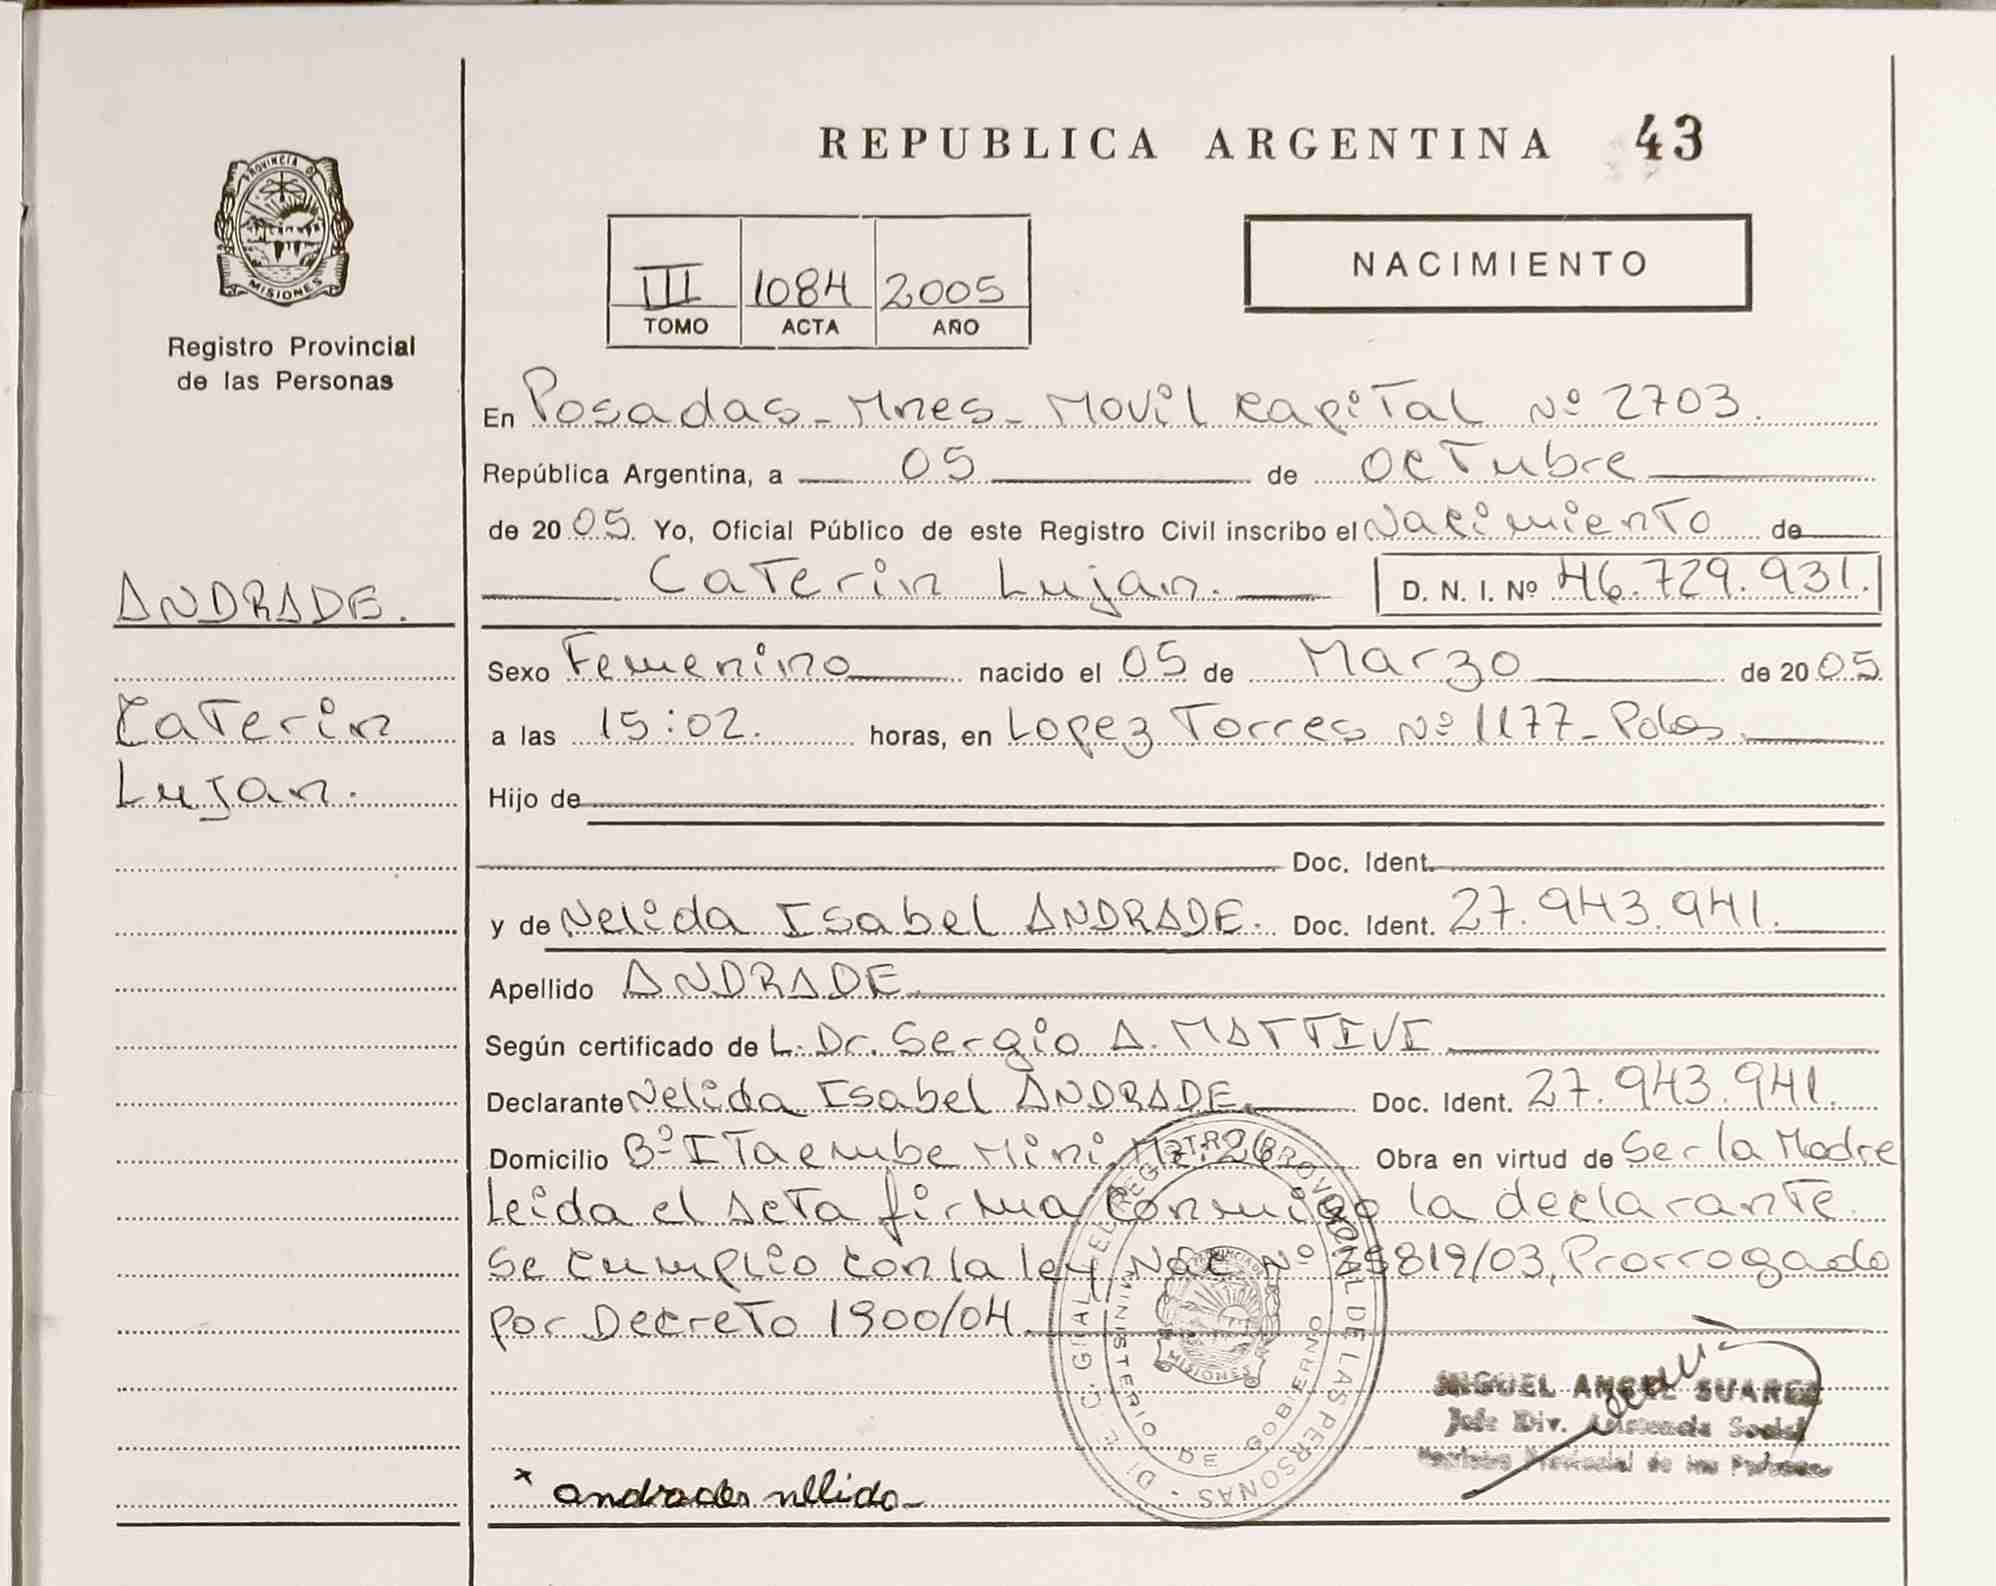 REPUBLICA ARGENTINA 43
PROVINCIA DE
MISIONES
Registro Provincial
de las Personas
III 1084 2005
TOMO ACTA AÑO
NACIMIENTO
En Posadas - Mnes - Movil Capital Nº 2703.
República Argentina, a 05 de Octubre
de 2005. Yo, Oficial Público de este Registro Civil inscribo el Nacimiento de
Caterin Lujan. D. N. I. Nº 46.729.931.
ANDRADE.
Caterin
Lujan.
Sexo Femenino nacido el 05 de Marzo de 2005.
a las 15:02. horas, en Lopez Torres Nº 1177 - Pdas.
Hijo de
Doc. Ident.
y de Nelida Isabel ANDRADE. Doc. Ident. 27.943.941.
Apellido ANDRADE.
Según certificado de L. Dr. Sergio A. MATTIVI
Declarante Nelida Isabel ANDRADE. Doc. Ident. 27.943.941.
Domicilio Bº Itaembe Mini, Mz. 26 Obra en virtud de Ser la Madre
Leida el Acta firma conmigo la declarante.
Se cumplio con la ley Nac Nº 25819/03, Prorrogado
por Decreto 1900/04.
REGISTRO PROVINCIAL DE LAS PERSONAS
MINISTERIO DE GOBIERNO
PROVINCIA DE
MISIONES
MIGUEL ANGEL SUAREZ
Jefe Div. Asistencia Social
Registro Provincial de las Personas
* andrade nelida